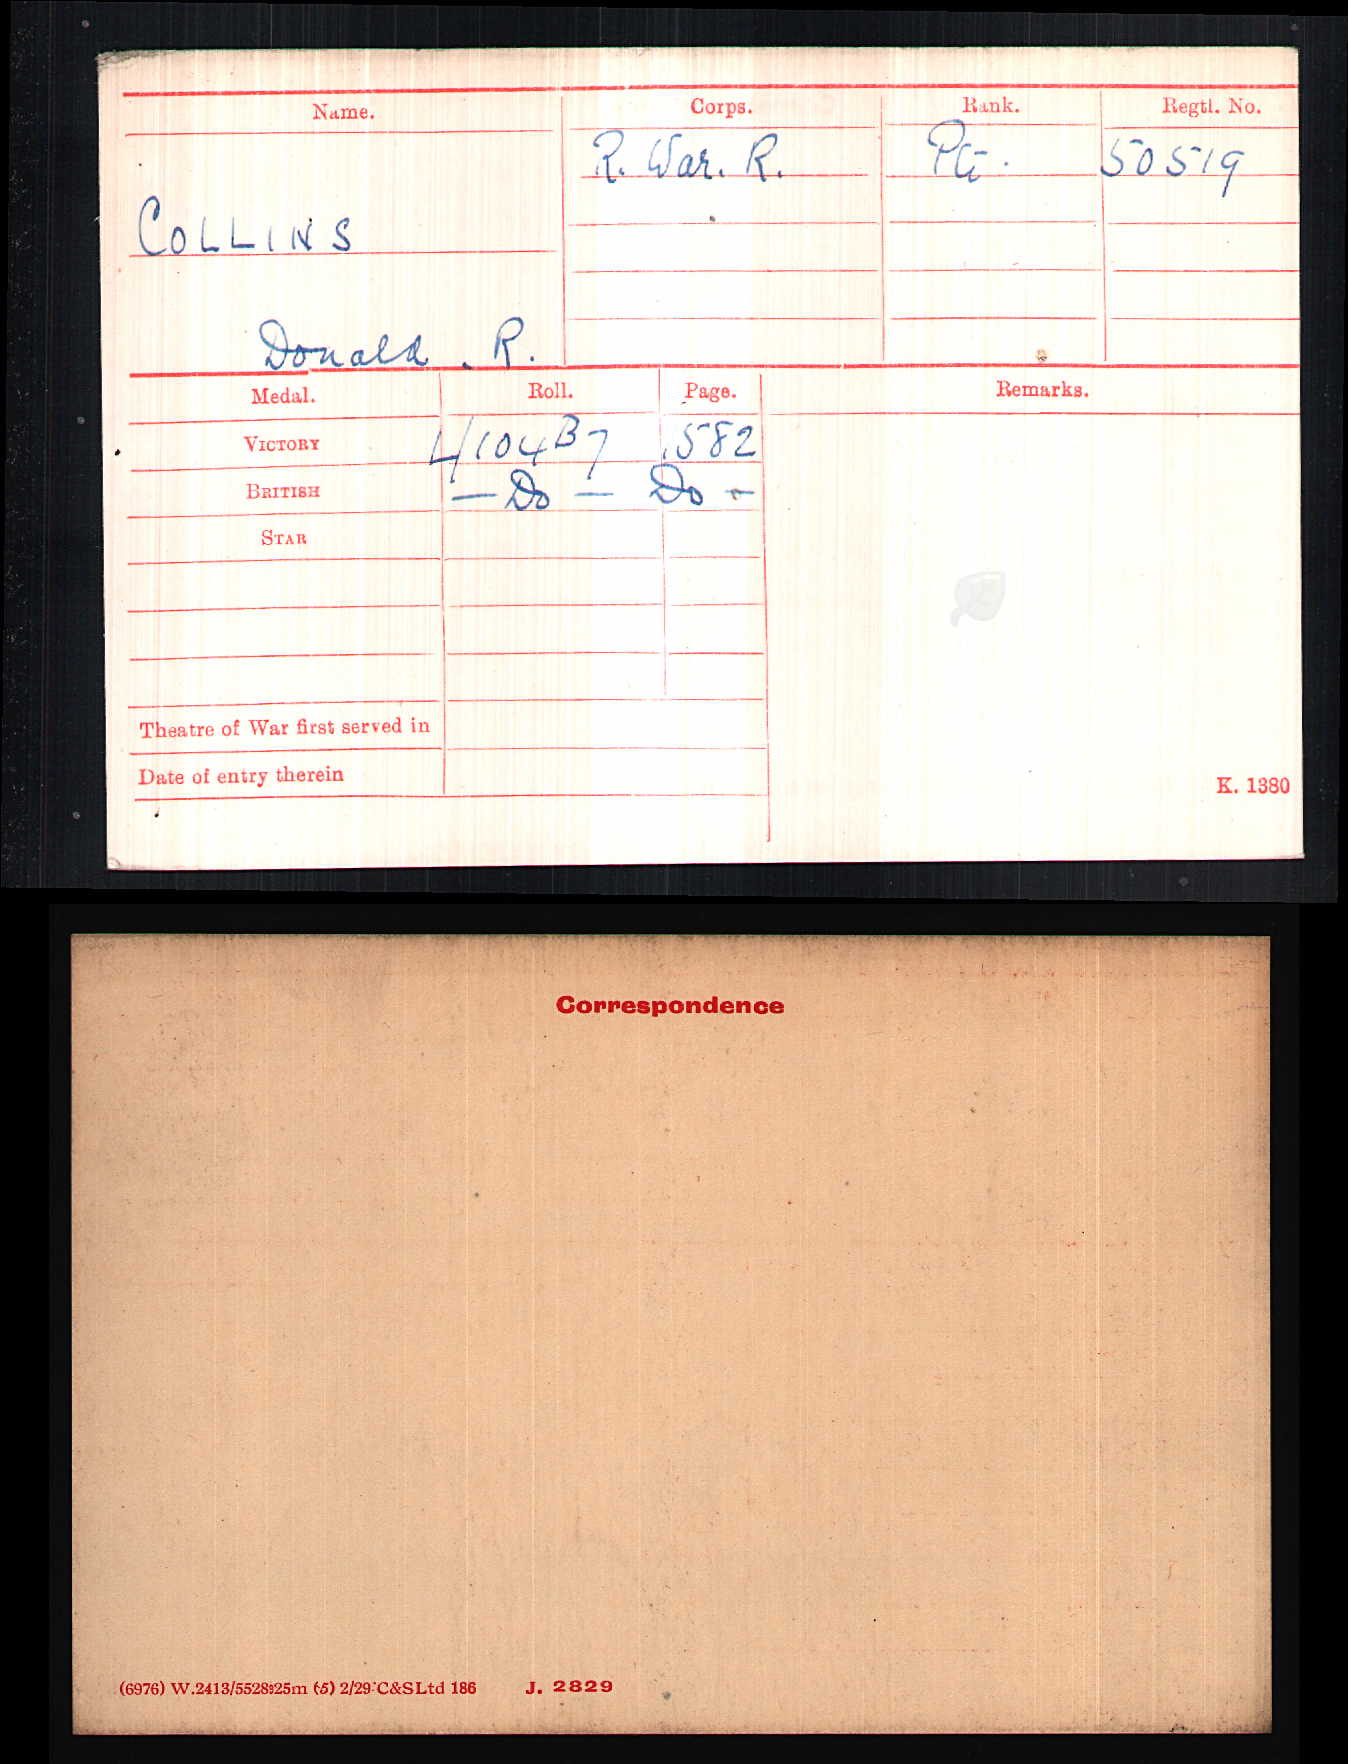 Name. Corps. Rank. Regtl. No.
R. War. R. Pte. 50519
COLLINS
Donald . R.
Medal. Roll. Page. Remarks.
VICTORY 4/104B7 582
BRITISH — Do — Do —
STAR
Theatre of War first served in
Date of entry therein
K. 1380
Correspondence
(6976) W.2413/5528 25m (5) 2/29 C&S Ltd 186 J. 2829